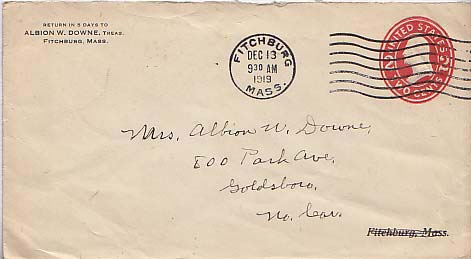 RETURN IN 5 DAYS TO
ALBION W. DOWNE, TREAS.
FITCHBURG, MASS.
FITCHBURG
DEC 13
9 30 AM
1919
MASS.
UNITED STATES
2 2
TWO CENTS
Mrs. Albion W. Downe,
800 Park Ave,
Goldsboro,
No. Car.
Fitchburg, Mass.